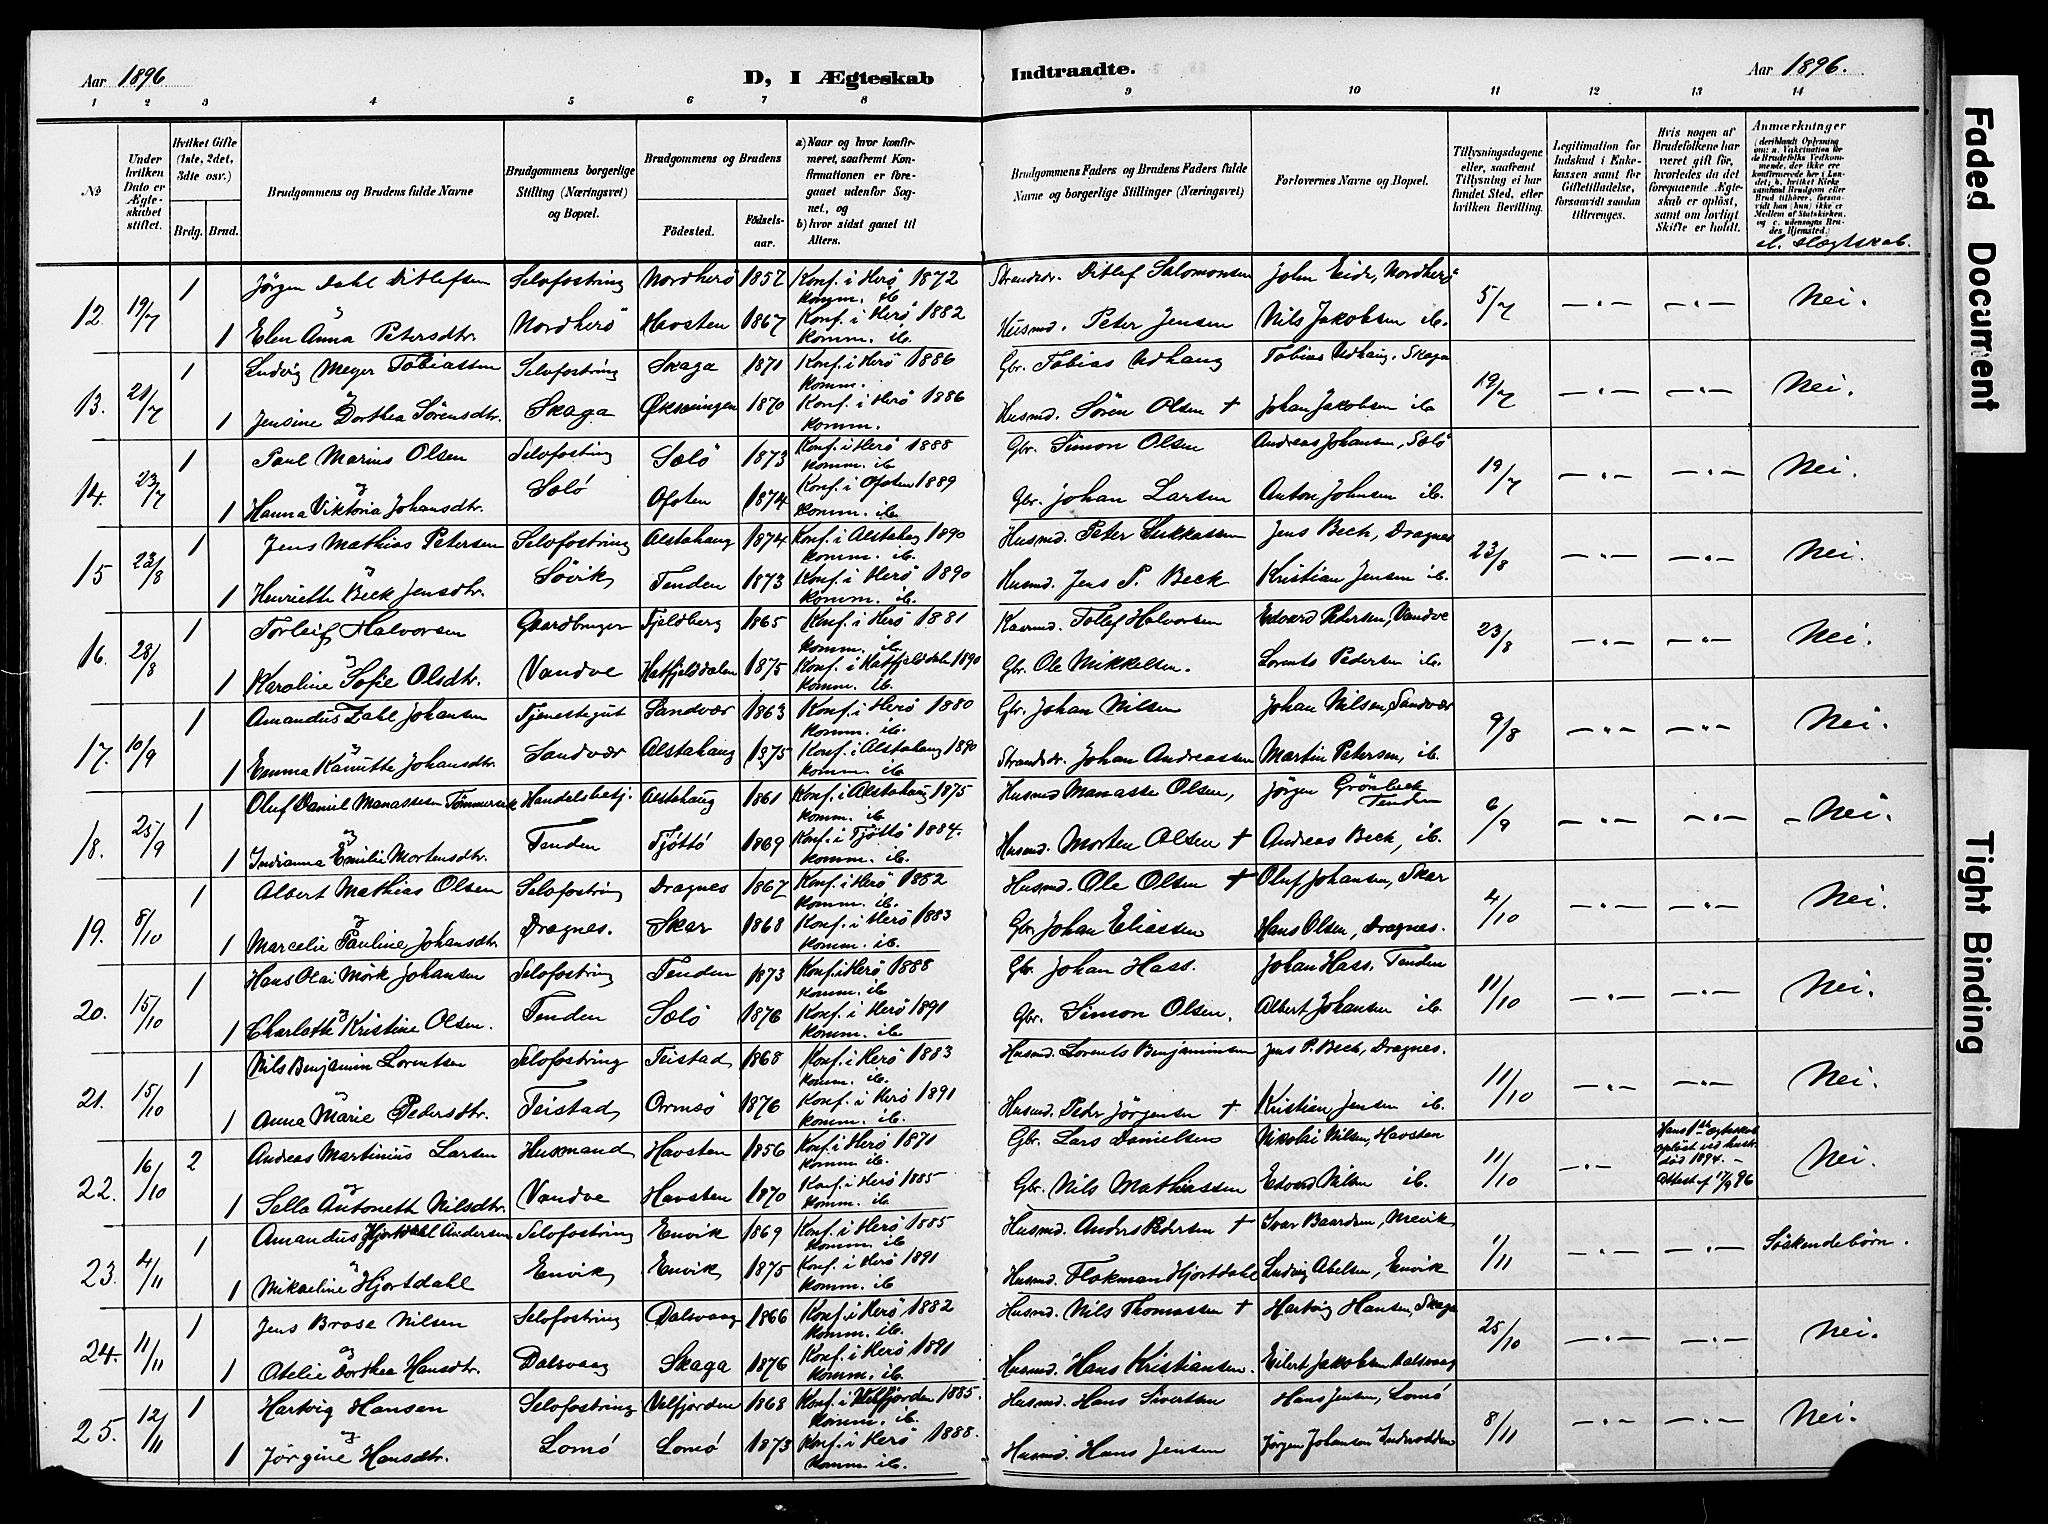 Aar 1896
D, I Ægteskab
Indtraadte.
Aar 1896.
1 2 3 4 5 6 7 8 9 10 11 12 13 14
No
Under hvilken Dato er Ægteskabet stiftet.
Hvilket Gifte (1ste, 2det, 3die osv.)
Brdg. Brud.
Brudgommens og Brudens fulde Navne
Brudgommens borgerlige Stilling (Næringsvei) og Bopæl.
Brudgommens og Brudens
Fødested.
Fødselsaar.
a) Naar og hvor konfirmeret, saafremt Konfirmationen er foregaaet udenfor Sognet, og
b) hvor sidst gaaet til Alters.
Brudgommens Faders og Brudens Faders fulde Navne og borgerlige Stillinger (Næringsvei)
Forlovernes Navne og Bopæl.
Tillysningsdagene eller, saafremt Tillysning ei har fundet Sted, efter hvilken Bevilling.
Legitimation for Indskud i Enkekassen samt for Giftetilladelse, forsaavidt saadan tiltrænges.
Hvis nogen af Brudefolkene har været gift før, hvorledes da det foregaaende Ægteskab er opløst, samt om lovligt Skifte er holdt.
Anmærkninger (deriblandt Oplysning om: a. Vakcination for de Brudefolks Vedkommende, der ikke ere konfirmerede her i Landet; b. hvilket Kirkesamfund Brudgom eller Brud tilhører, forsaavidt han (hun) ikke er Medlem af Statskirken, og c. udensogns Brudes Hjemsted.)
d. slægtskab.
12. 19/7 1 Jörgen Dahl Ditlefsen Selvfostring Nordherö 1857 Konf. i Herö 1872 Strandsdr. Ditlef Salomonsen John Eide, Nordherö 5/7 — " — — " — Nei.
og komm. ib
1 Elen Anna Petersdtr. Nordherö Havsten 1867 Konf. i Herö 1882 Husmd. Peter Jensen Nils Jakobsen ib.
komm. ib.
13. 21/7 1 Ludvig Meyer Tobiassen Selvfostring Skaga 1871 Konf. i Herö 1886 Gbr. Tobias Udhaug Tobias Udhaug, Skaga 19/7 — " — — " — Nei.
og komm.
1 Jensine Dorthea Sörensdtr. Skaga Øksningen 1870 Konf. i Herö 1886 Husmd. Sören Olsen + Johan Jakobsen ib
komm.
14. 23/7 1 Paul Marius Olsen Selvfostring Sælö 1873 Konf. i Herö 1888 Gbr. Simon Olsen Andreas Johansen, Sælö 19/7 — " — — " — Nei.
og komm. ib
1 Hanna Viktoria Johansdtr. Sælö Ofoten 1874 Konf. i Ofoten 1889 Gbr. Johan Larsen Anton Johnsen ib.
komm. ib
15 23/8 1 Jens Mathias Petersen Selvfostring Alstahaug 1874 Konf. i Alstahaug 1890 Husmd. Peter Lukkassen Jens Beck, Dragnes 23/8 — " — — " — Nei.
og komm. ib.
1 Henriette Beck Jensdtr. Søvik Tenden 1873 Konf. i Herö 1890 Husmd. Jens P. Beck Kristian Jensen ib.
komm. ib.
16. 28/8 1 Torleif Halvorsen Gaardbruger Fjeldberg 1865 Konf. i Herö 1881 Tollef Halvorsen Edvard Pedersen, Vandve 23/8 — " — — " — Nei.
og komm. ib.
1 Karoline Sofie Olsdtr. Vandve Hatfjelddalen 1875 Konf. i Hatfjelddalen 1890 Gbr. Ole Mikkelsen. Lorents Pedersen ib.
komm. ib.
17. 10/9 1 Amandus Zahl Johansen Tjenestegut Sandvær 1863 Konf. i Herö 1880 Gbr. Johan Nilsen Johan Nilsen, Sandvær 9/8 — " — — " — Nei.
og komm. ib.
1 Emma Kanutte Johansdtr. Sandvær Alstahaug 1875 Konf. i Alstahaug 1890 Strandsdr. Johan Andreassen Martin Petersen, ib.
komm ib.
18. 25/9 1 Oluf Daniel Manassesen Tømmervik Handelsbetj. Alstahaug 1861 Konf. i Alstahaug 1875 Husmd Manasse Olsen, Jörgen Grönbeck Tenden 6/9 — " — — " — – Nei.
og komm. ib
1 Indianna Emilie Mortensdtr. Tenden Tjöttö 1869 Konf. i Tjøttö 1884. Husmd. Morten Olsen + Andreas Beck, ib.
komm. ib.
19. 8/10 1 Albert Mathias Olsen Selvfostring Dragnes 1867 Konf. i Herö 1882 Husmd. Ole Olsen + Oluf Johansen, Skar 4/10 — " — — " — Nei.
og komm. ib.
1 Marcelie Pauline Johansdtr. Dragnes. Skar 1868 Konf. i Herö 1883 Gbr. Johan Eliassen Hans Olsen, Dragnes.
komm. ib.
20. 15/10 1 Hans Olai Mörk Johansen Selvfostring Tenden 1873 Konf. i Herö 1888 Gbr. Johan Hass. Johan Hass, Tenden 11/10 — " — — " — Nei.
og komm. ib
1 Charlotte Kristine Olsen. Tenden Sælö 1876 Konf. i Herö 1891 Gbr. Simon Olsen. Albert Johansen ib.
komm. ib
21. 15/10 1 Nils Benjamin Lorentsen Selvfostring Teistad 1868 Konf. i Herö 1883 Husmd. Lorents Benjaminsen Jens P. Beck, Dragnes. 11/10 — " — — " — Nei.
og komm. ib.
1 Anna Marie Pedersdtr. Teistad Ormsö 1876 Konf. i Herö 1891 Husmd. Peder Jörgensen + Kristian Jensen ib.
komm. ib.
22. 16/10 2 Andreas Martinius Larsen Husmand Havsten 1856 Konf. i Herö 1871 Gbr. Lars Danielsen Nikolai Nilsen, Havsten 11/10 — " — Hans 1ste ægteskab opløst ved hustr. død 1894. – Attest af 17/9 96 Nei.
og komm ib.
1 Sella Antonette Nilsdtr. Vandve Havsten 1870 Konf. i Herö 1885 Gbr. Nils Mathiassen Edvard Nilsen ib.
komm. ib
23. 4/11 1 Amandus Hjortdahl Andersen Selvfostring Envik 1869 Konf. i Herö 1885 Husmd. Anders Pedersen + Ivar Baardsen, Nævik 1/11 — " — — " — Søskendebørn.
og komm ib
1 Mikaeline Hjortdahl Envik Envik 1875 Konf. i Herö 1891 Husmd. Flokman Hjortdahl Ludvig Abelsen, Envik
komm. ib
24. 11/11 1 Jens Brose Nilsen Selvfostring Dalsvaag 1866 Konf. i Herö 1882 Husmd. Nils Thomassen + Hartvig Hansen, Skaga 25/10 — " — — " — Nei.
og komm. ib.
1 Abelie Dorthea Hansdtr. Dalsvaag Skaga 1876 Konf. i Herö 1891 Husmd. Hans Kristiansen. Eilert Jakobsen Dalsvaag
komm. ib.
25. 12/11 1 Hartvig Hansen Selvfostring Velfjorden 1868 Konf. i Velfjorden 1885. Husmd. Hans Sivertsen Hans Jensen, Lomö 8/11 — " — — " — Nei.
og komm. ib.
1 Jörgine Hansdtr. Lomö Lomö 1873 Konf. i Herö 1888. Husmd. Hans Jensen Jörgen Johansen Inderodden
komm. ib.
Faded Document
Tight Binding